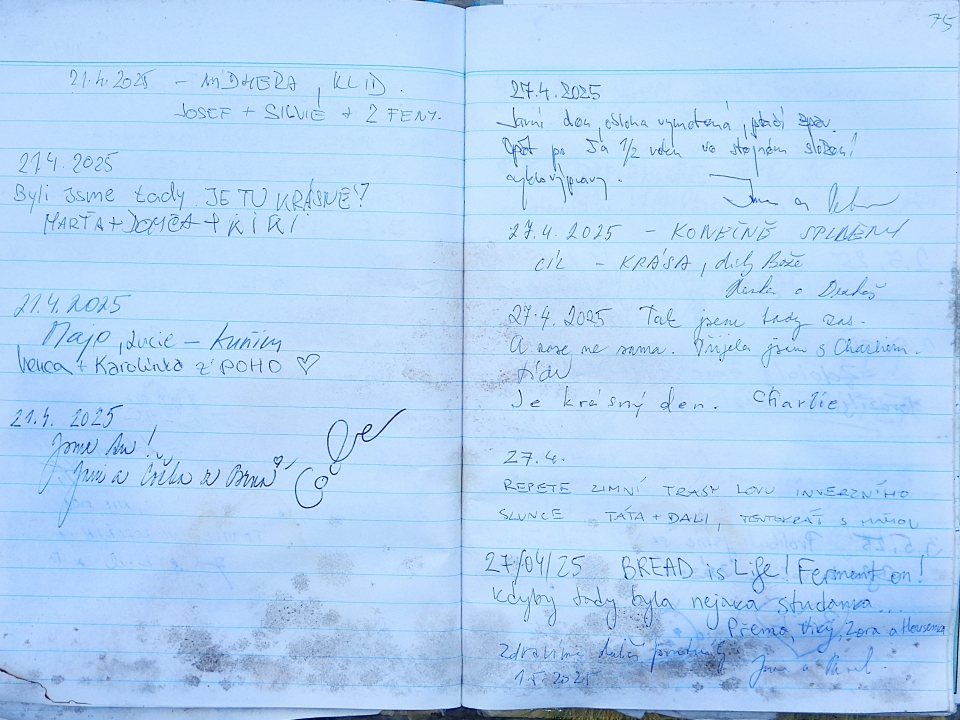 21.4.2025 – NÁDHERA, KLID.
JOSEF + SILVIE + 2 FENY.
21.4. 2025
Byli jsme tady JE TU KRÁSNĚ!
MARŤA + + KIKI
21.4.2025
Majo, Lucie – Kuřim
Venca + Karolínka z POHO ♡
21.4. 2025
Jsme tu!
Jani a z Brna
75
27.4.2025
Jarní den, obloha vymetená, ptačí zpěv.
Opět po 1/2 roku ve stejném složení
cyklovýpravy.
a
27.4. 2025 – KONEČNĚ SPLNĚNÝ
CÍL – KRÁSA, díky Bože
a
27.4. 2025 Tak jsem tady zas.
A zase ne sama. Přijela jsem s Charliem.
Je krásný den. Charlie
27.4.
REPETE ZIMNÍ TRASY LOVU INVERZNÍHO
SLUNCE TÁTA + DALI, TENTOKRÁT S MÁMOU
27/04/25 BREAD is Life! Ferment on!
Kdyby tady byla nejaka studanka...
Přema, Viky, Zora a Housenka
Zdravíme další
a
1.5.2025